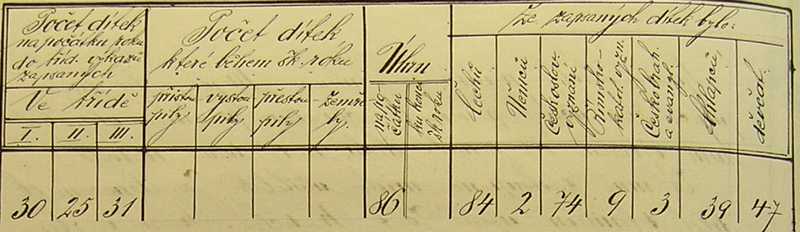 Počet dítek
na počátku roku
do tříd. výkazů
zapsaných
Ve třídě
I. II. III.
Počet dítek
které během šk. roku
přistou-
pily
vystou-
pily
přestou-
pily
zemře-
ly.
Úhrn
na po-
čátku
na konci
šk. roku
Ze zapsaných dítek bylo:
Čechů
Němců
Českoslov.
vyznání
Římsko-
katol. vyzn.
Českobrat.
a evang.
Chlapců
děvčat.
30 25 31 86 84 2 74 9 3 39 47